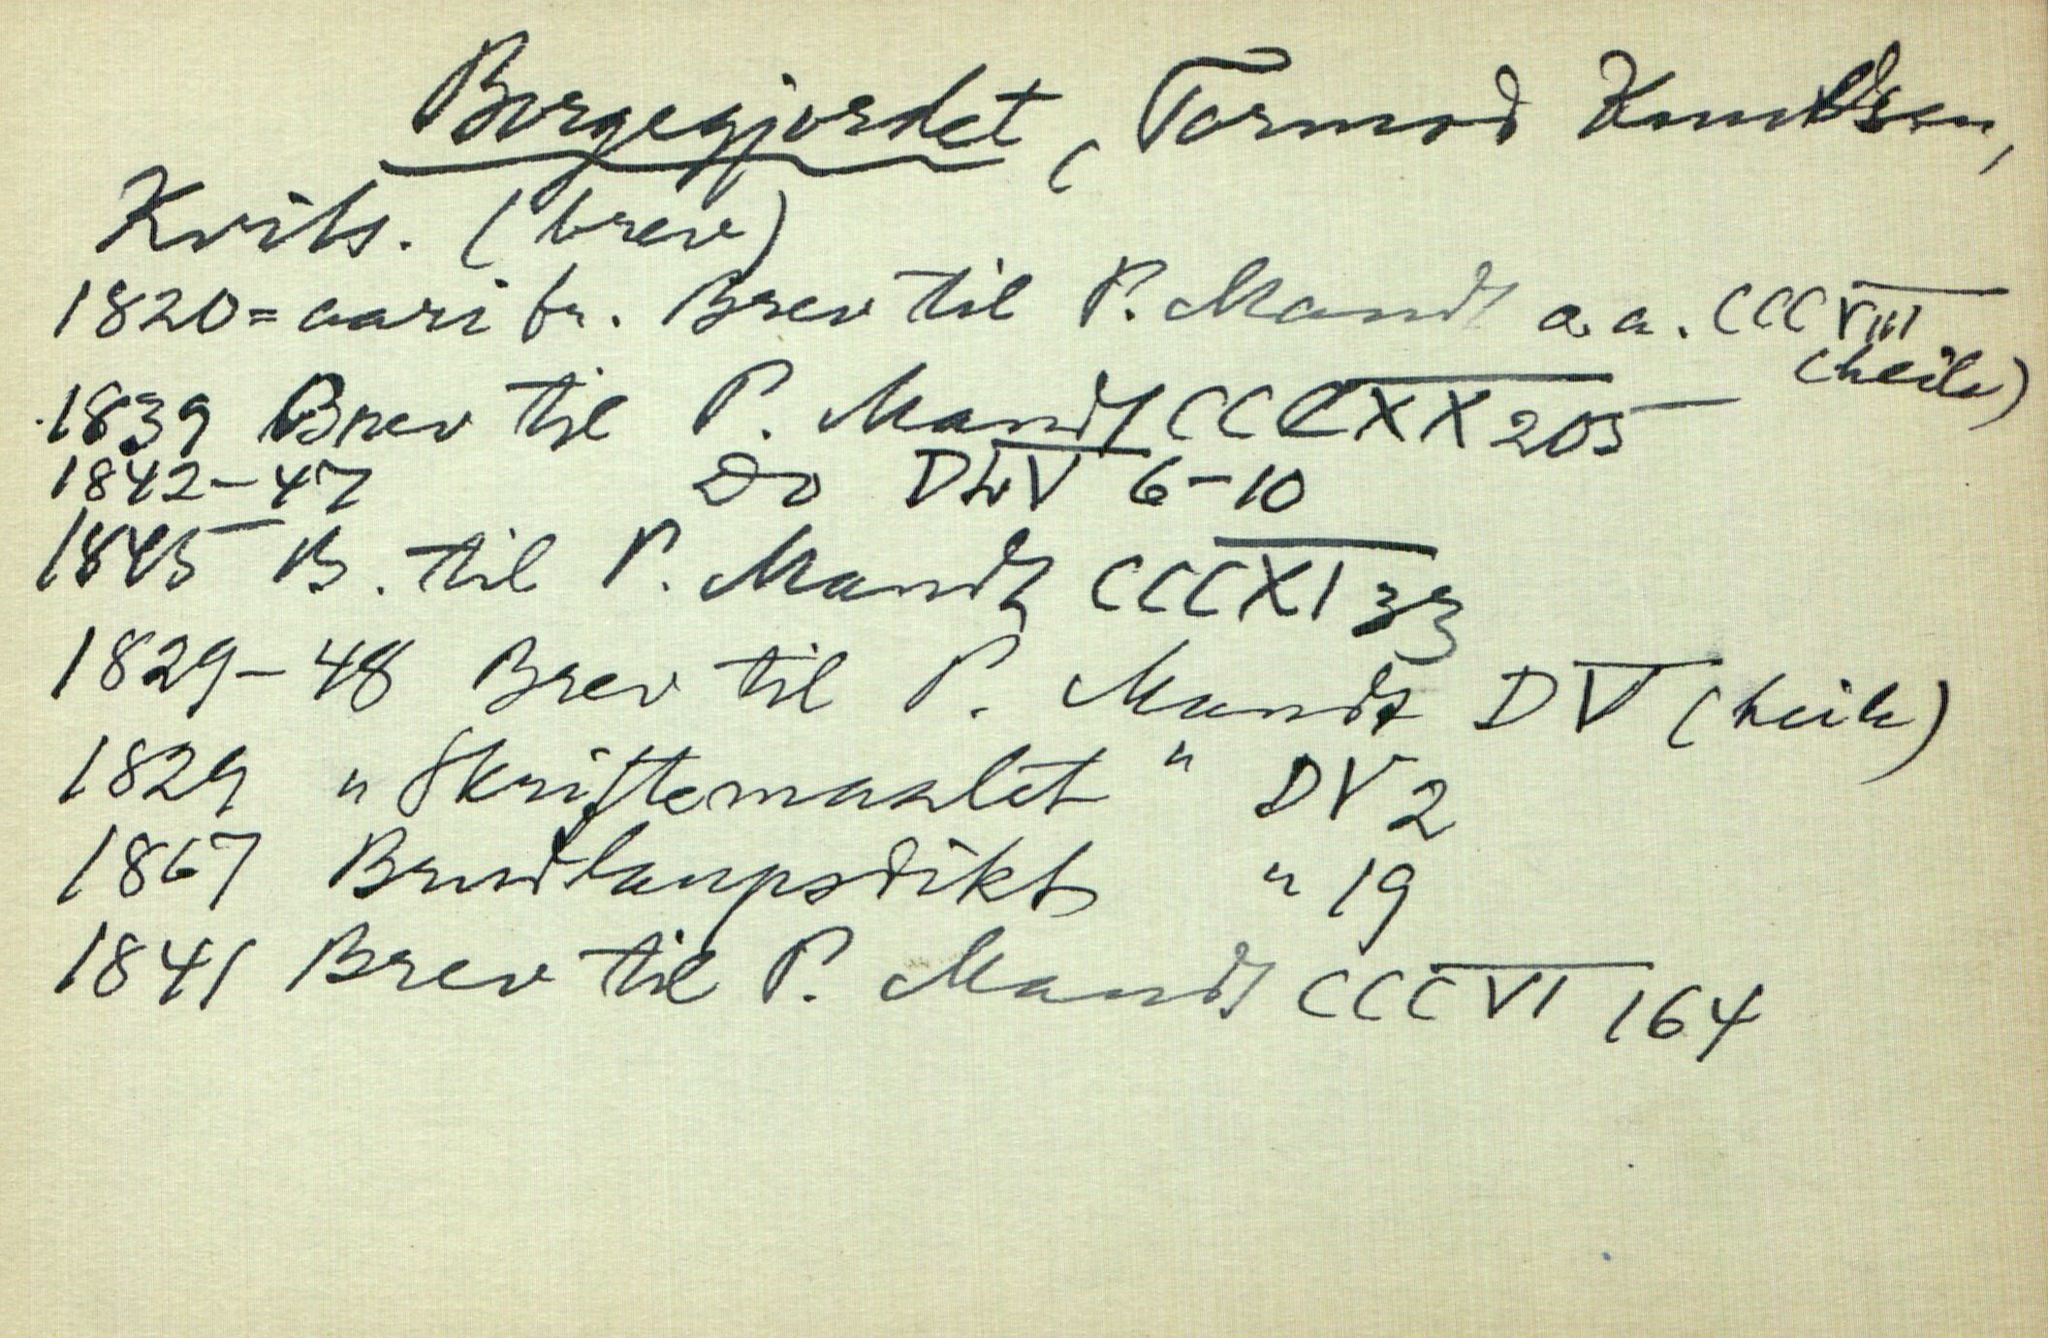 Borgegjordet, Tormod Knudsen,
Kvits. (brev)
1820-aari fr. Brev til P. Mandt a.a. CCCVIII
(heile)
1839 Brev til P. Mandt CCCXX 205
1842-47 Do DLV 6-10
1845 B. til P. Mandt CCCXI 33
1829-48 Brev til P. Mandt DV (heile)
1829 "Skriftemaalet" DV 2
1867 Brudlaupsdikt " 19
1841 Brev til P. Mandt CCCVI 164